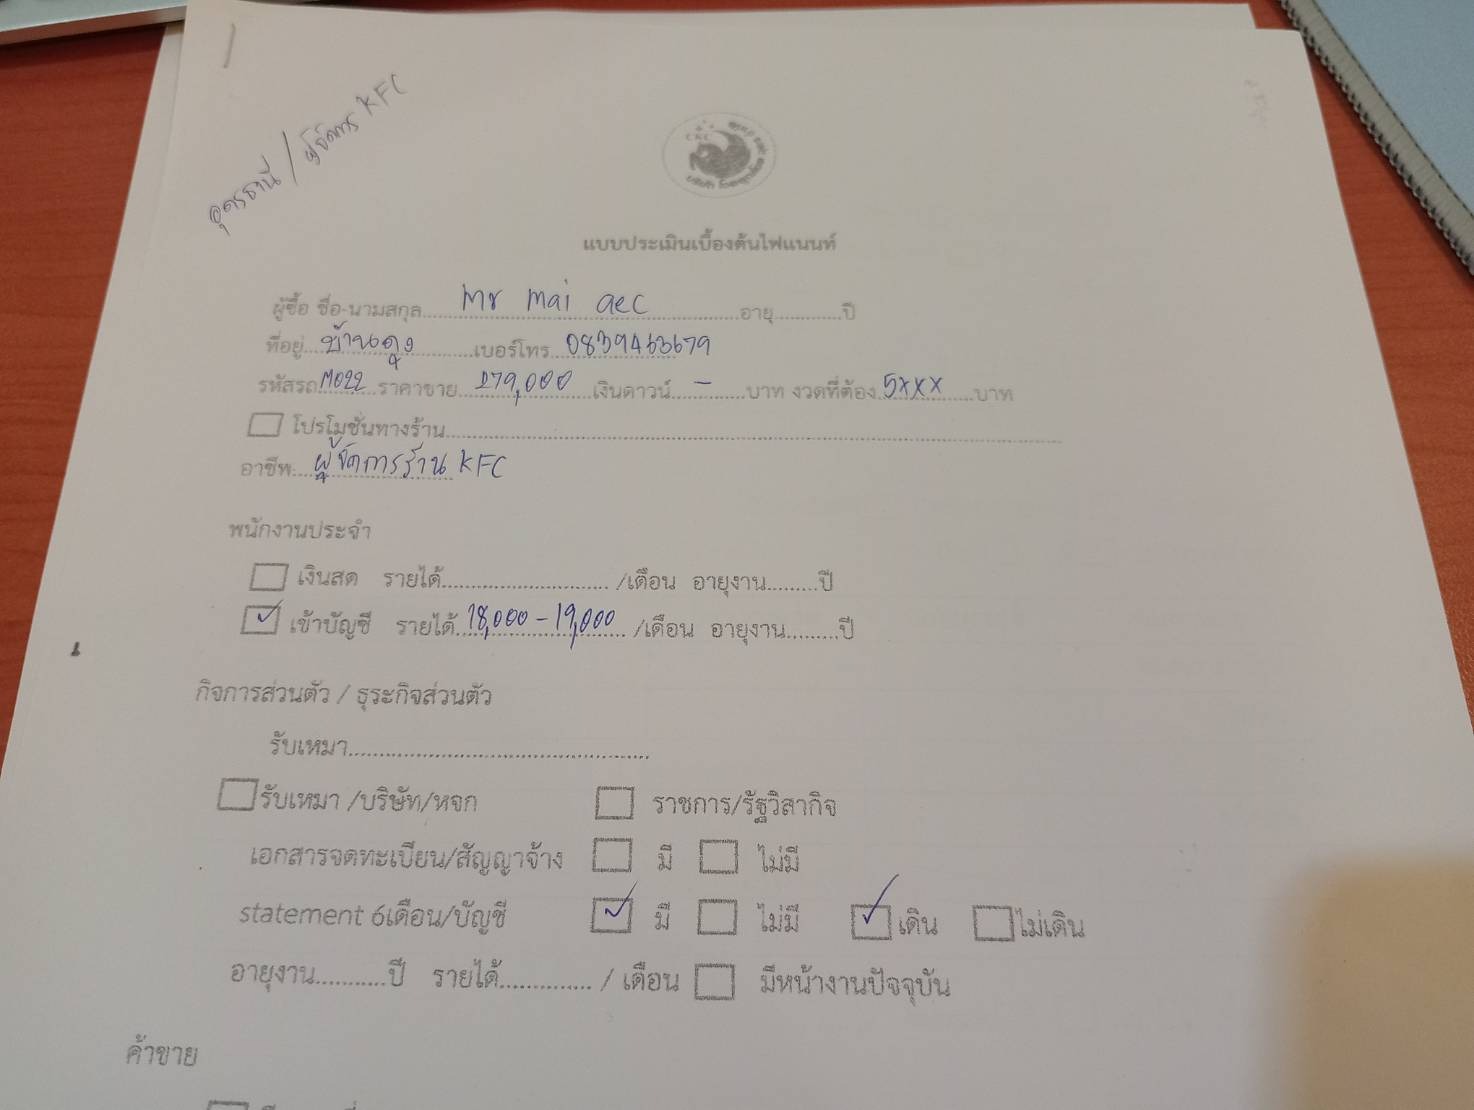 อุดรธานี / ผู้จัดการ KFC
แบบประเมินเบื้องต้นไฟแนนท์
ผู้ซื้อ ชื่อ-นามสกุล Mr Mai aec อายุ ปี
ที่อยู่ บ้านดุง เบอร์โทร 0839453679
รหัสรถ M022 ราคาขาย 279,000 เงินดาวน์ - บาท งวดที่ต้อง 5xxx บาท
โปรโมชั่นทางร้าน
อาชีพ ผู้จัดการร้าน KFC
พนักงานประจำ
เงินสด รายได้ /เดือน อายุงาน ปี
เข้าบัญชี รายได้ 18,000 - 19,000 /เดือน อายุงาน ปี
กิจการส่วนตัว / ธุระกิจส่วนตัว
รับเหมา
รับเหมา /บริษัท/หจก ราชการ/รัฐวิสากิจ
เอกสารจดทะเบียน/สัญญาจ้าง มี ไม่มี
statement 6เดือน/บัญชี มี ไม่มี เดิน ไม่เดิน
อายุงาน ปี รายได้ / เดือน มีหน้างานปัจจุบัน
ค้าขาย